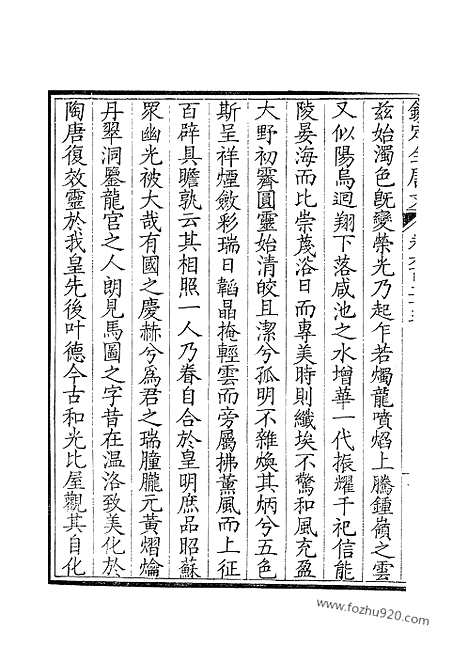 欽定全唐文
茲始濁色旣變榮光乃起乍若燭龍噴焰上騰鍾嶺之雲
又似陽烏迴翔下落咸池之水增華一代振耀千祀信能
陵晏海而比崇蔑浴日而專美時則纖埃不驚和風充盈
大野初霽圓靈始清皎且潔兮孤明不雜煥其炳兮五色
斯呈祥煙斂彩瑞日韜晶掩輕雲而旁屬拂薰風而上征
百辟具瞻孰云其相照一人乃眷自合於皇明庶品昭蘇
眾幽光被大哉有國之慶赫兮爲君之瑞朣朧元黃熠爚
丹翠洞鑒龍宫之人朗見馬圖之字昔在温洛致美化於
陶唐復效靈於我皇先後叶德今古和光比屋觀其自化
www.fozhu920.com